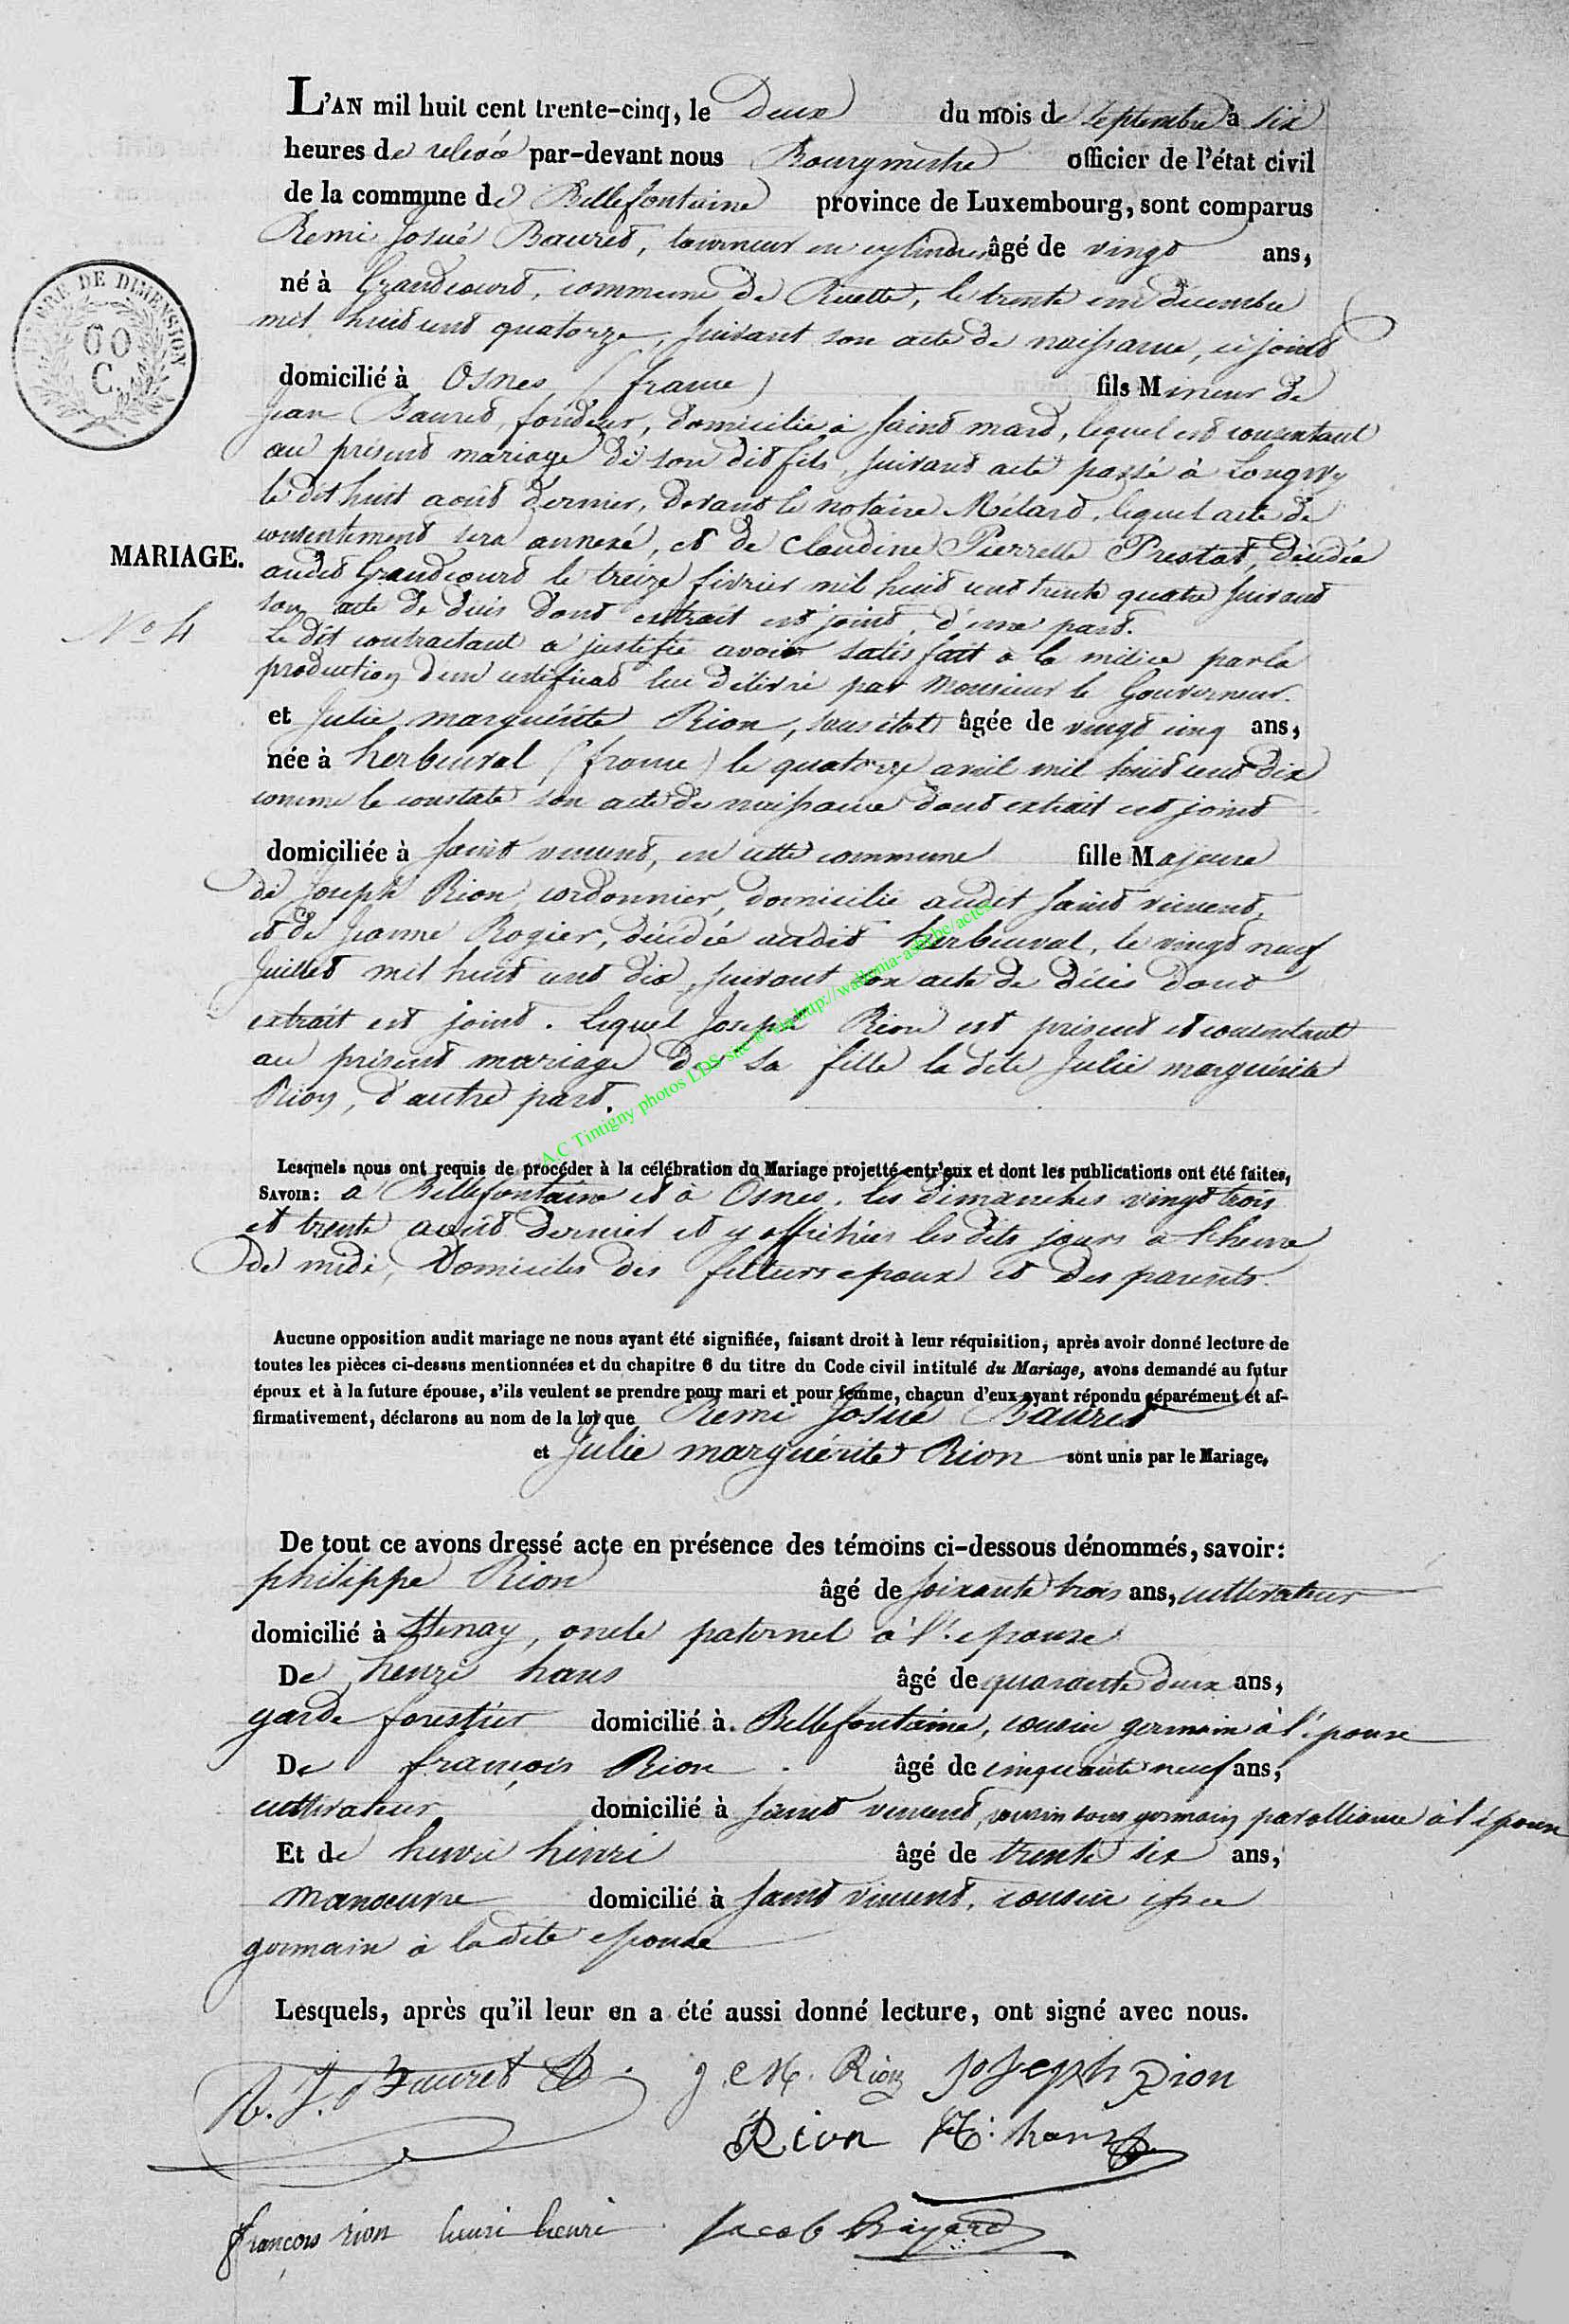 L'AN mil huit cent trente-cinq, le Deux du mois de Septembre à six
heures de relevée par-devant nous Bourgmestre officier de l'état civil
de la commune de Bellefontaine province de Luxembourg, sont comparus
Remi Josué Bauret, tourneur en cylindres âgé de vingt ans,
né à Grandcourt, commune de Ruette, le trente un décembre
mil huit cent quatorze, suivant son acte de naissance, ci joint
TIMBRE DE DIMENSION
60
C.
domicilié à Osnes (france) fils Mineur de
jean Bauret, fondeur, domicilié à Saint mard, lequel est consentant
au présent mariage de son dit fils, suivant acte passé à Longwy
le dix huit août dernier, devant le notaire Mélard, lequel acte de
consentement sera annexé, et de Claudine Pierrette Prestat, décédée
MARIAGE.
audit Grandcourt le treize février mil huit cent trente quatre suivant
son acte de décès dont extrait est joint, d'une part.
N° 4
Le dit contractant a justifié avoir satisfait à la milice par la
production d'un certificat lui délivré par Monsieur le Gouverneur.
et Julie marguérite Rion, sans état âgée de vingt cinq ans,
née à herbeuval (france) le quatorze avril mil huit cent dix
comme le constate son acte de naissance dont extrait est joint
domiciliée à Saint vincent, en cette commune fille Majeure
de Joseph Rion, cordonnier, domicilié audit Saint vincent,
et de Jeanne Rogier, décédée audit herbeuval, le vingt neuf
Juillet mil huit cent dix, suivant son acte de décès dont
extrait est joint. lequel Joseph Rion est présent et consentant
au présent mariage de sa fille la dite Julie marguérite
Rion, d'autre part.
A.C Tintigny photos LDS site @ via http://wallonia-asbl.be/actes
Lesquels nous ont requis de procéder à la célébration du Mariage projetté entr'eux et dont les publications ont été faites,
SAVOIR: à Bellefontaine et à Osnes, les dimanches vingt trois
et trente août dernier et y affichées les dits jours à l'heure
de midi, Domiciles des futurs epoux et des parents.
Aucune opposition audit mariage ne nous ayant été signifiée, faisant droit à leur réquisition, après avoir donné lecture de
toutes les pièces ci-dessus mentionnées et du chapitre 6 du titre du Code civil intitulé du Mariage, avons demandé au futur
époux et à la future épouse, s'ils veulent se prendre pour mari et pour femme, chacun d'eux ayant répondu séparément et af-
firmativement, déclarons au nom de la loi que Remi Josué Bauret
et Julie marguérite Rion sont unis par le Mariage.
De tout ce avons dressé acte en présence des témoins ci-dessous dénommés, savoir:
philippe Rion âgé de soixante trois ans, cultivateur
domicilié à Stenay, oncle paternel à l'epouse
De henri hans âgé de quarante deux ans,
garde forestier domicilié à Bellefontaine, cousin germain à l'epouse
De françois Rion âgé de cinquante neuf ans,
cultivateur domicilié à Saint vincent, cousin sous germain par alliance à l'épouse
Et de henri henri âgé de trente six ans,
manoeuvre domicilié à Saint vincent, cousin issu
germain à la dite epouse
Lesquels, après qu'il leur en a été aussi donné lecture, ont signé avec nous.
R. J. Bauret J. M. Rion Joseph Rion
Rion H: hans
françois rion henri henri Jacob